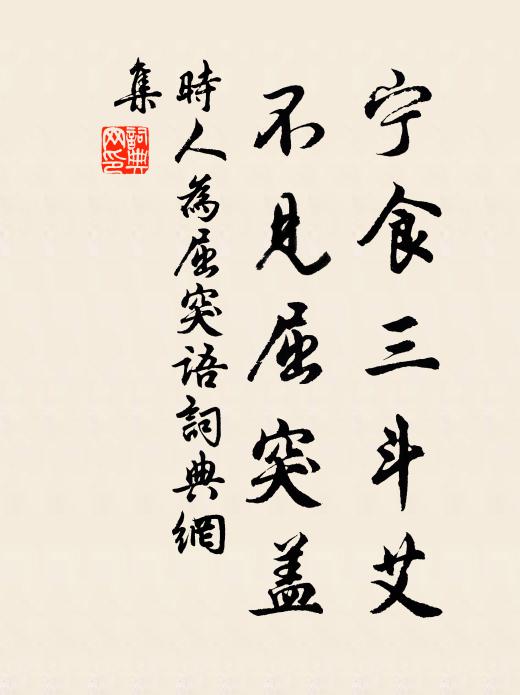 宁食三斗艾
不見屈突盖
時人為屈突語詞典網
集
詞典
网印